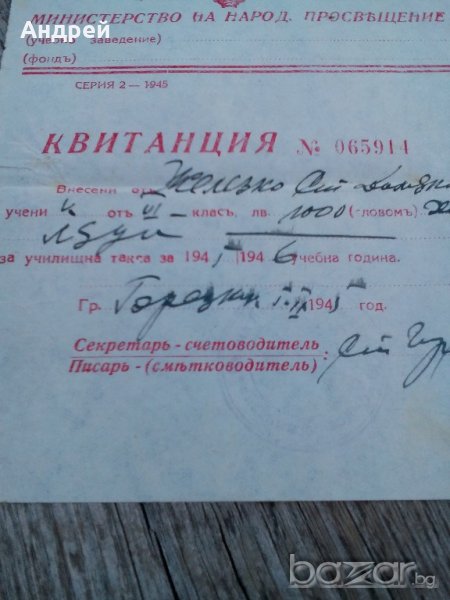 Андрей
МИНИСТЕРСТВО НА НАРОД. ПРОСВѢЩЕНИЕ
(учебно заведение)
(фондъ)
СЕРИЯ 2 — 1945
КВИТАНЦИЯ № 065914
Внесени отъ Желязко Ст.
учени к отъ VI класъ, лв. 1000 (-ловомъ)
за училищна такса за 194 5 194 6 учебна година.
Гр. 194 5 год.
Секретарь - счетоводитель
Писарь - (смѣтководитель) : Ст
bazar.bg